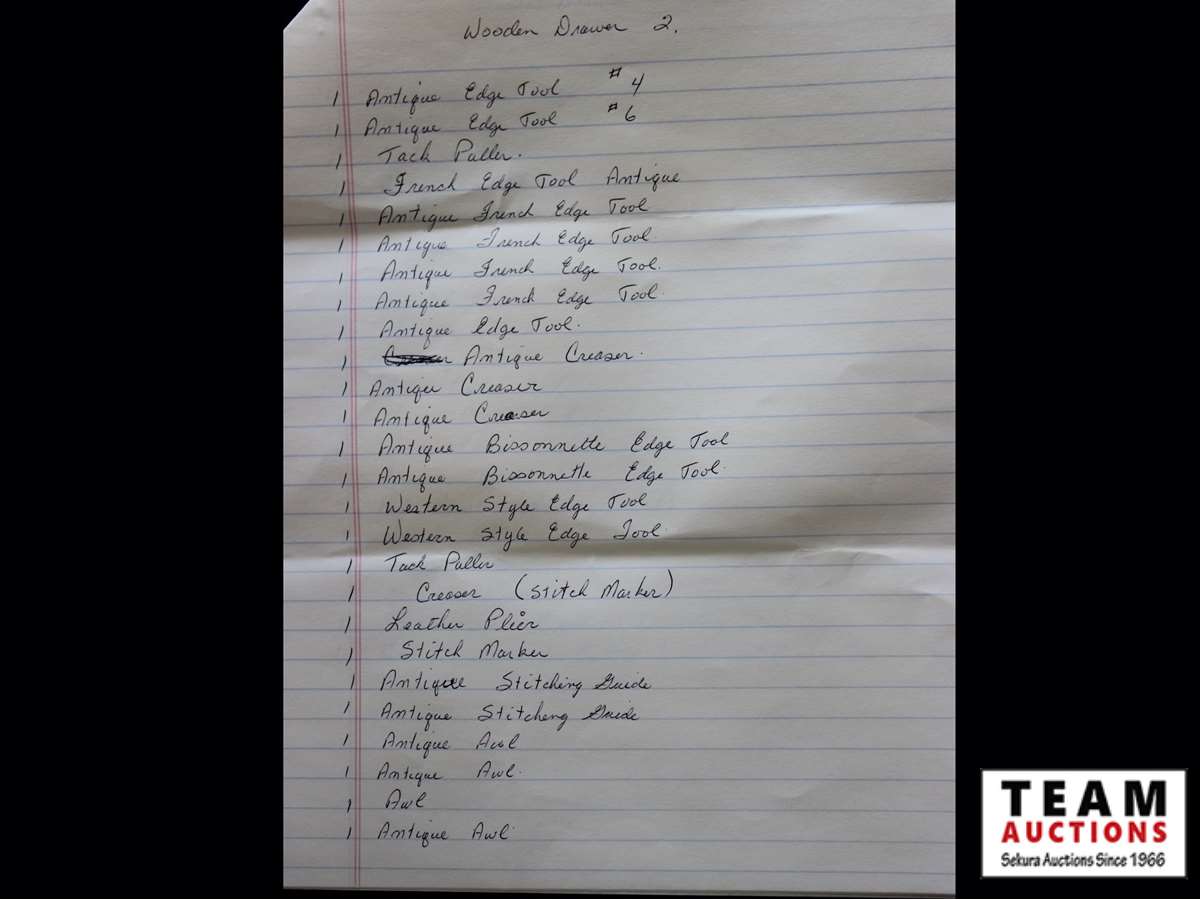 Wooden Drawer 2.
1 Antique Edge Tool #4
1 Antique Edge Tool #6
1 Tack Puller.
1 French Edge Tool Antique
1 Antique French Edge Tool
1 Antique French Edge Tool.
1 Antique French Edge Tool.
1 Antique French Edge Tool.
1 Antique Edge Tool.
1 Antique Creaser.
1 Antiqer Creaser
1 Antique Creaser
1 Antique Bissonnette Edge Tool
1 Antique Bissonnette Edge Tool.
1 Western Style Edge Tool
1 Western Style Edge Tool.
1 Tack Puller
1 Creaser (Stitch Marker)
1 Leather Plier
1 Stitch Marker
1 Antique Stitching Guide
1 Antique Stitcheng Guide
1 Antique Awl
1 Antique Awl.
1 Awl
1 Antique Awl.
TEAM
AUCTIONS
Sekura Auctions Since 1966